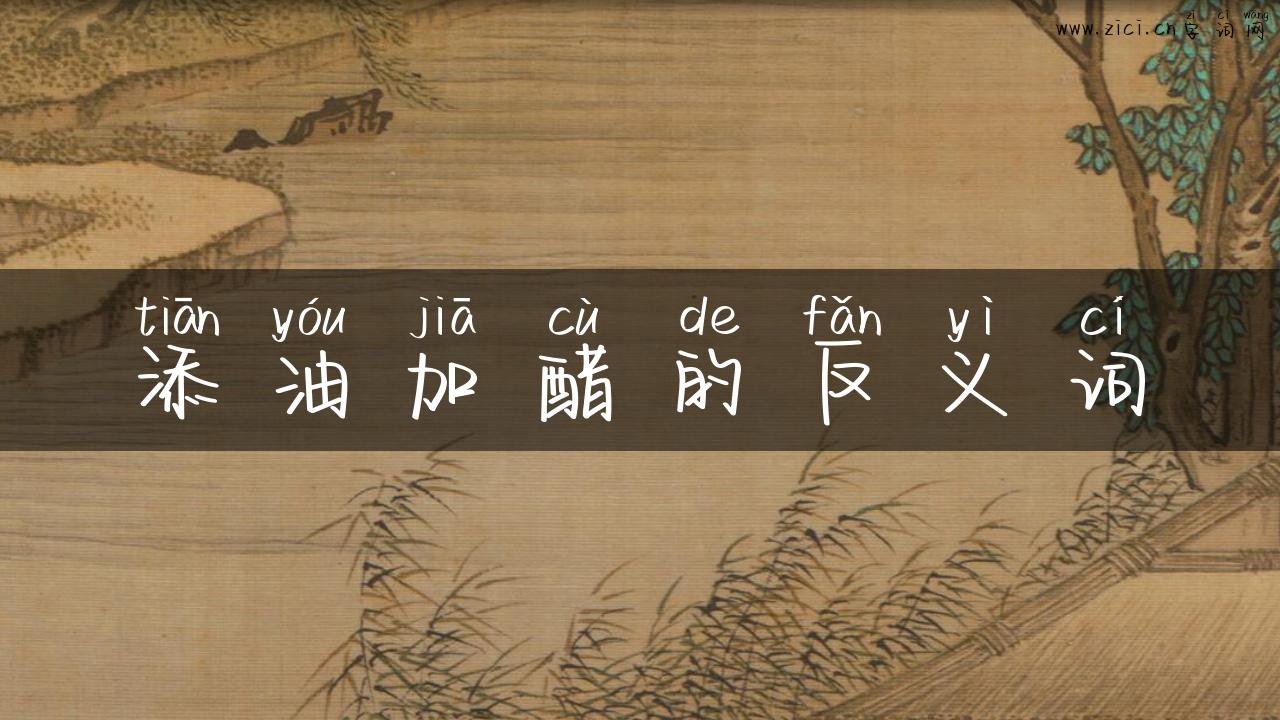 zì cí wǎng
www.zici.cn字词网
tiān yóu jiā cù de fǎn yì cí
添油加醋的反义词